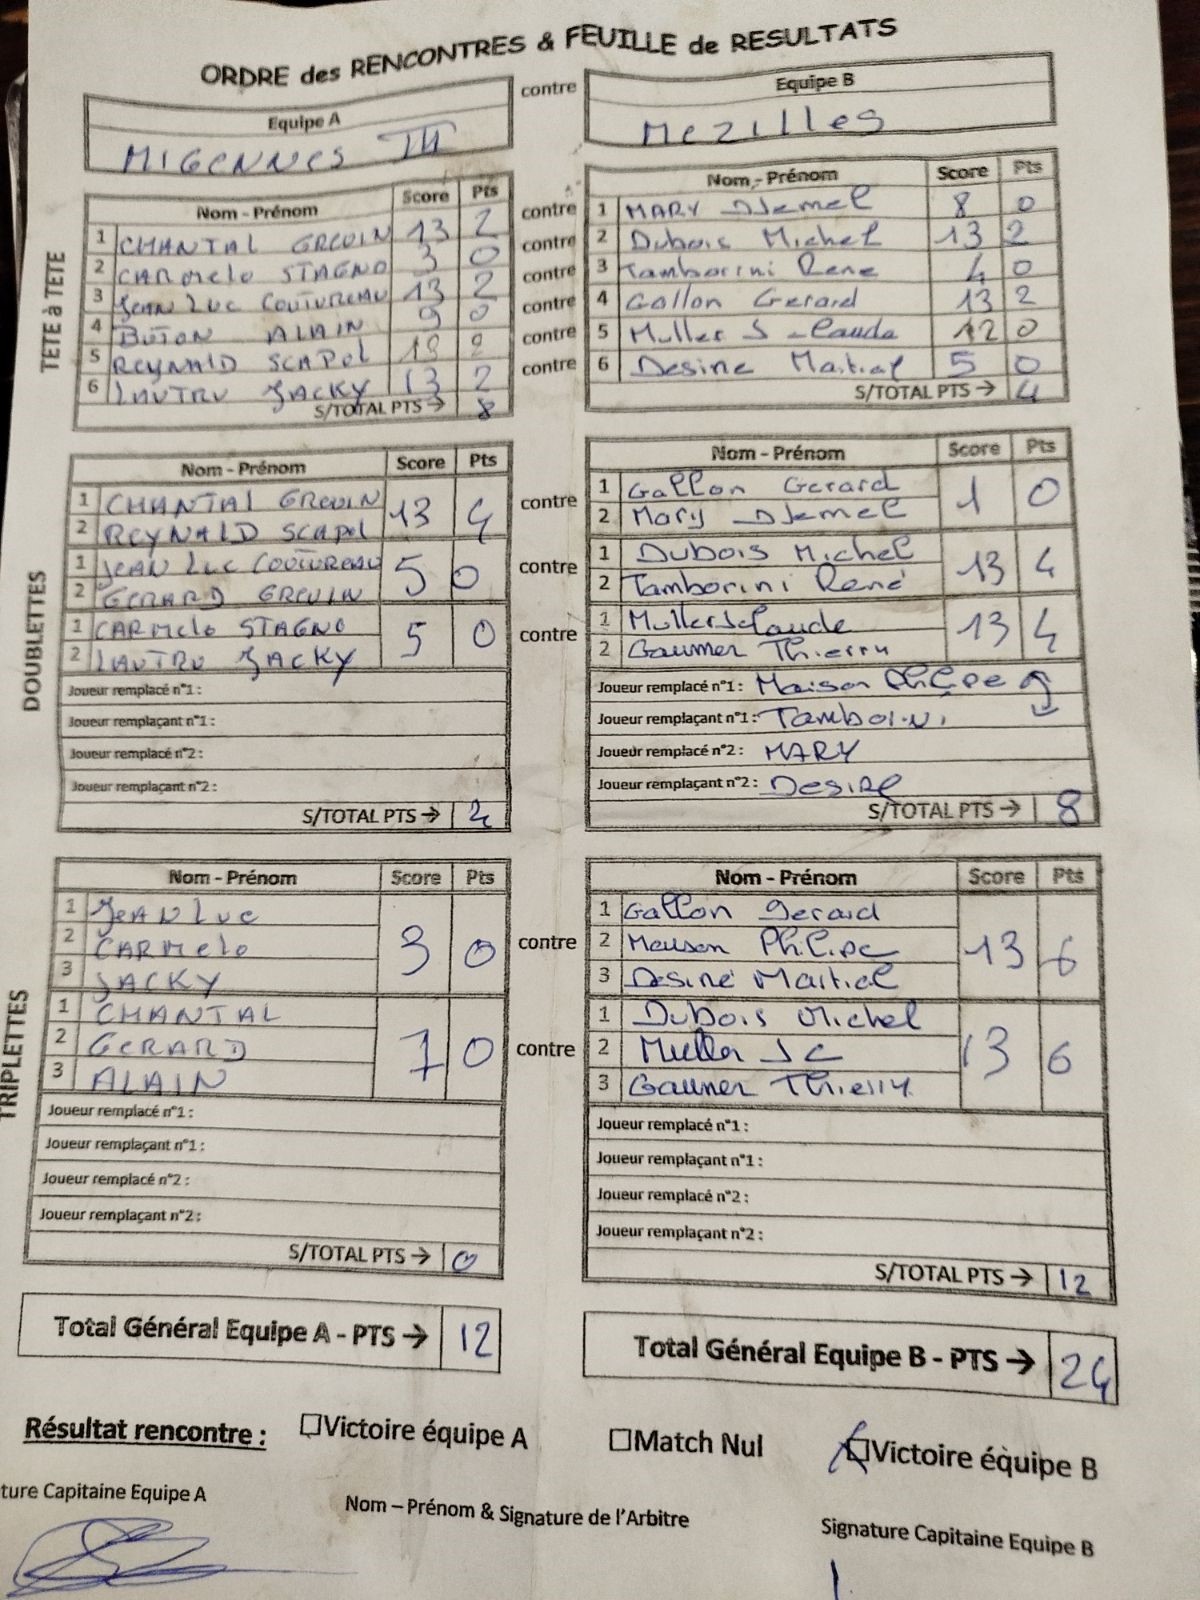 ORDRE des RENCONTRES & FEUILLE de RESULTATS
Equipe A contre Equipe B
MIGENNES III MEZILLES
TETE à TETE
Nom - Prénom Score Pts Nom - Prénom Score Pts
1 CHANTAL GREUIN 13 2 contre 1 MARY DJemel 8 0
2 CARMelo STAGNO 3 0 contre 2 Dubois Michel 13 2
3 JEAN LUC COUTUREAU 13 2 contre 3 Tamborini Rene 4 0
4 BUTON ALAIN 9 0 contre 4 Gallon Gerard 13 2
5 REYNALD SCAPOL 13 2 contre 5 Muller J-Claude 12 0
6 LAUTRU JACKY 13 2 contre 6 Desiré Martial 5 0
S/TOTAL PTS → 8 S/TOTAL PTS → 4
DOUBLETTES
Nom - Prénom Score Pts Nom - Prénom Score Pts
1 CHANTAL GREUIN 13 4 contre 1 Gallon Gerard 1 0
2 REYNALD SCAPOL 2 Mary DJemel
1 JEAN LUC COUTUREAU 5 0 contre 1 Dubois Michel 13 4
2 GERARD GREUIN 2 Tamborini René
1 CARMelo STAGNO 5 0 contre 1 Muller J Claude 13 4
2 LAUTRU JACKY 2 Gaumer Thierry
Joueur remplacé n°1 : Joueur remplacé n°1 : Maison Philipe
Joueur remplaçant n°1 : Joueur remplaçant n°1 : Tamboini
Joueur remplacé n°2 : Joueur remplacé n°2 : MARY
Joueur remplaçant n°2 : Joueur remplaçant n°2 : DesiRe
S/TOTAL PTS → 4 S/TOTAL PTS → 8
TRIPLETTES
Nom - Prénom Score Pts Nom - Prénom Score Pts
1 JEAN LUC 3 0 contre 1 Gallon Gerard 13 6
2 CARMelo 2 Maison Philipe
3 JACKY 3 Desiré Martial
1 CHANTAL 7 0 contre 1 Dubois Michel 13 6
2 GERARD 2 Muller JC
3 ALAIN 3 Gaumer Thierry
Joueur remplacé n°1 : Joueur remplacé n°1 :
Joueur remplaçant n°1 : Joueur remplaçant n°1 :
Joueur remplacé n°2 : Joueur remplacé n°2 :
Joueur remplaçant n°2 : Joueur remplaçant n°2 :
S/TOTAL PTS → 0 S/TOTAL PTS → 12
Total Général Equipe A - PTS → 12 Total Général Equipe B - PTS → 24
Résultat rencontre : Victoire équipe A Match Nul Victoire équipe B
ture Capitaine Equipe A Nom – Prénom & Signature de l'Arbitre Signature Capitaine Equipe B